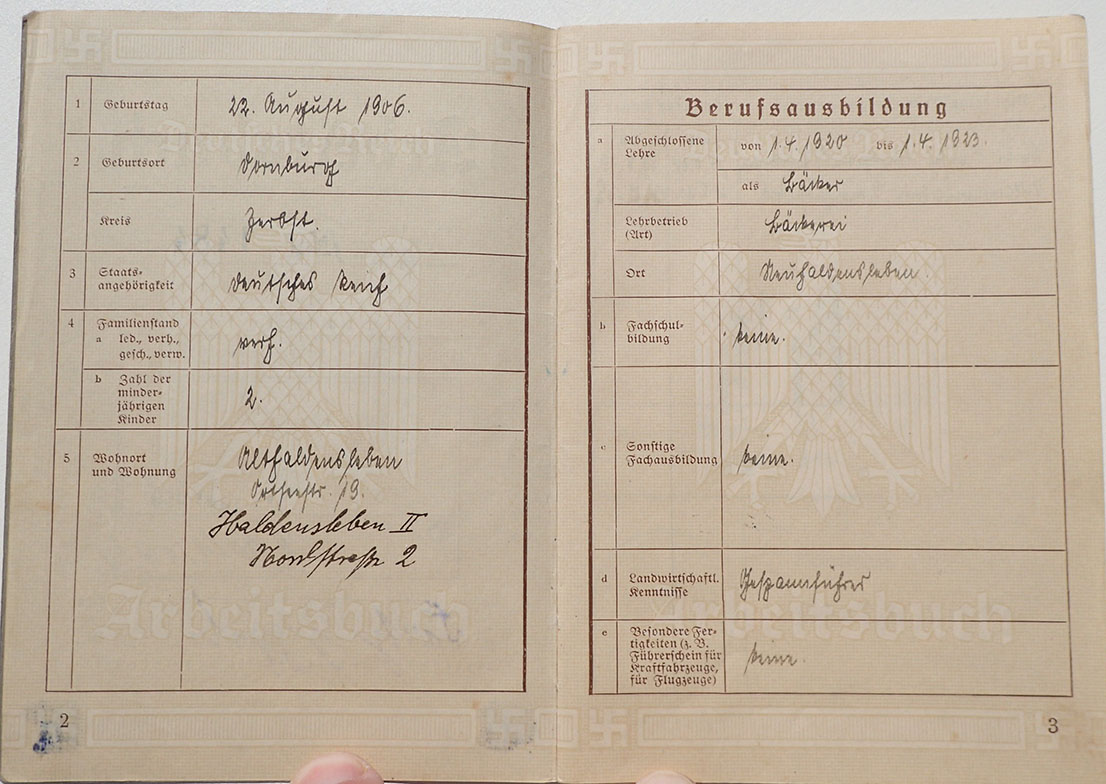 1 Geburtstag 22. August 1906.
2 Geburtsort Dornburg
Kreis Zerbst.
3 Staats-
angehörigkeit Deutsches Reich
4 Familienstand
a led., verh., verh.
gesch., verw.
b Zahl der
minder-
jährigen 2.
Kinder
5 Wohnort Althaldensleben
und Wohnung
str. 19.
Haldensleben II
Nordstraße 2
Arbeitsbuch
2
Berufsausbildung
a Abgeschlossene von 1.4.1920 bis 1.4.1923.
Lehre
als Bäcker
Lehrbetrieb Bäckerei
(Art)
Ort Neuhaldensleben.
b Fachschul-
bildung keine.
c Sonstige
Fachausbildung keine.
d Landwirtschaftl. Gespannführer
Kenntnisse
e Besondere Fer-
tigkeiten (z. B.
Führerschein für keine.
Kraftfahrzeuge,
für Flugzeuge)
Arbeitsbuch
3